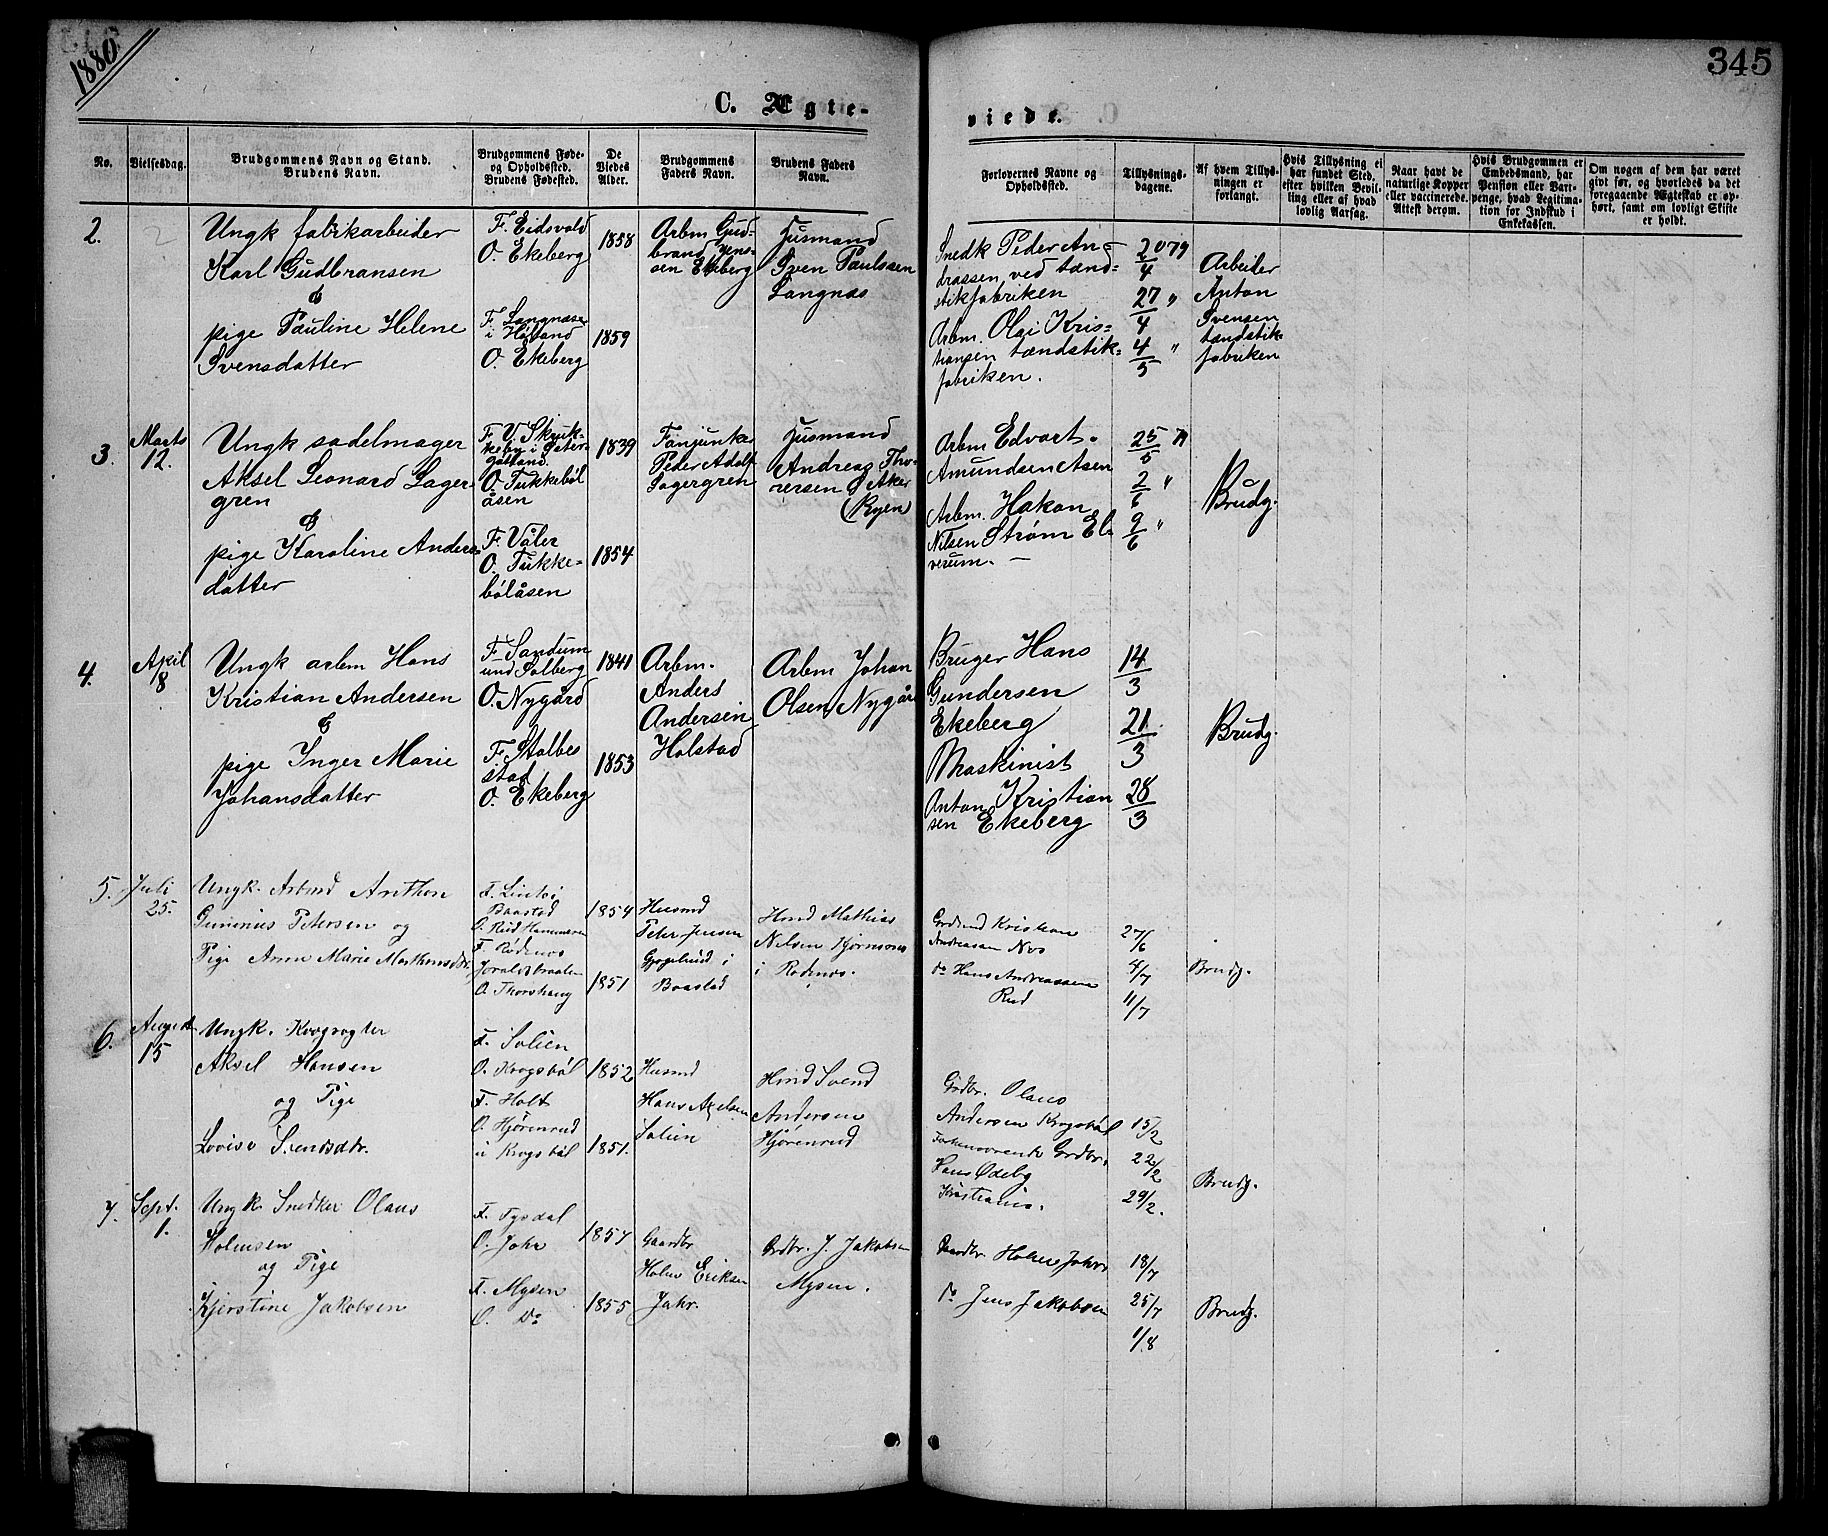 1880
345
C. Ægte-
viede.
No.
Vielsesdag.
Brudgommens Navn og Stand.
Brudens Navn.
Brudgommens Føde-
og Opholdssted.
Brudens Fødested.
De
Viedes
Alder.
Brudgommens
Faders Navn.
Brudens Faders
Navn.
Forlovernes Navne og
Opholdssted.
Tillysnings-
dagene.
Af hvem Tillys-
ningen er
forlangt.
Hvis Tillysning ei
har fundet Sted,
efter hvilken Bevil-
ling eller af hvad
lovlig Aarsag.
Naar havt de
naturlige Kopper
eller vaccinerede.
Attest derom.
Hvis Brudgommen er
Embedsmand, har
Pension eller Var-
penge, hvad Legitima-
tion for Indskud i
Enkekassen.
Om nogen af dem har været
givt før, og hvorledes da det
foregaaende Ægteskab er op-
hørt, samt om lovligt Skifte
er holdt.
2. 2
Ungk fabrikarbeider
Karl Gudbransen
&
pige Pauline Helene
Svensdatter
F. Eidsvold
O. Ekeberg
F. Langnæsen
i Høland
O. Ekeberg
1858
1859
Arbm Gud-
brand Jens-
sen Ekeberg
Husmand
Sven Paulssen
Langnæs
Snedk Peder An-
drassen ved tænd-
stikfabriken
Arbm. Olai Kris-
tiansen tændstik-
fabriken.
20/4 79
27/4 "
4/5 "
Arbeider
Anton
Svensen
tændstik
fabriken
3.
Marts
12.
Ungk sadelmager
Aksel Leonard Lager-
gren
&
pige Karoline Anders
datter
F. V. Skruk-
keby i Øster-
gøtland.
O. Tukkebøl
åsen
F. Våler
O. Tukke-
bølåsen
1839
1854
Fanjunker
Peder Adolf
Lagergren
Husmand
Andreas Tho-
rersen Aker
(Ryen)
Arbm Edvart
Amundsen Åsen
Arbm. Hakon
Nilsen Strøm El-
verum. —
25/5 79
2/6 "
9/6 "
Brudg.
4.
April
8
Ungk arbm Hans
Kristian Andersen
&
pige Inger Marie
Johansdatter
F. Sandum
und Solberg
O. Nygård
F. Stalbe
stad
O. Ekeberg
1841
1853
Arbm.
Anders
Andersen
Holstad
Arbm Johan
Olsen Nygård
Bruger Hans
Gundersen
Ekeberg
Maskinist
Anton Kristian
sen Ekeberg
14/3
21/3
28/3
Brudg.
5.
Juli
25.
Ungk. Arbmd Anthon
Gunerius Petersen og
Pige Anne Marie Mathinsdtr.
Baastad
O. Rud
F. Rødenes
O. Thorshaug
1854
1851
Husmd
Peter Jensen
i
Baastad
Hmd Mathias
Nilsen
i Rødenes.
Grdmd Kristian
Andreasen Nes
do Hans Andreassen
Rud
27/6
4/7
11/7
Brudg.
6.
August
15
Ungk. Krøgvogter
Aksel Hansen
og Pige
Lovise Svendsdtr.
F. Solien
O. Krogsbøl
F. Holt
O. Hjørenrud
u Krogsbøl
1852
1851.
Husmd
Hans Axelsen
Solien
Hmd Svend
Andersen
Hjørenrud
Grdbr. Olaus
Andersen Krogsbøl
Forhenværende Grdbr.
Hans Ødeby
Kristiania.
15/2
22/2
29/2.
Brudg.
7.
Sept.
1.
Ungk. Snedker Olaus
Holmsen
og Pige
Kjerstine Jakobsen
F. Tysdal
O. Jahr
F. Mysen
O. Do
1857
1855
Gaardbr
Holm Eriksen
Jahr.
Grdbr. J. Jakobsen
Mysen.
Gaardbr. Holm Jahr
do Jens Jakobsen
18/7
25/7
1/8
Brudg.